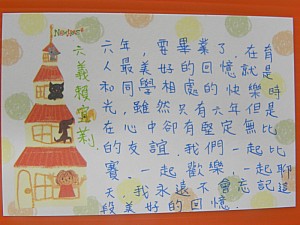 六義賴
莉
六年，要畢業了，在有
人最美好的回憶就是
和同學相處的快樂時
光，雖然只有六年但是
在心中卻有堅定無比
的友誼，我們一起比
賽、一起歡樂、一起聊
天，我永遠不會忘記這
段美好的回憶．